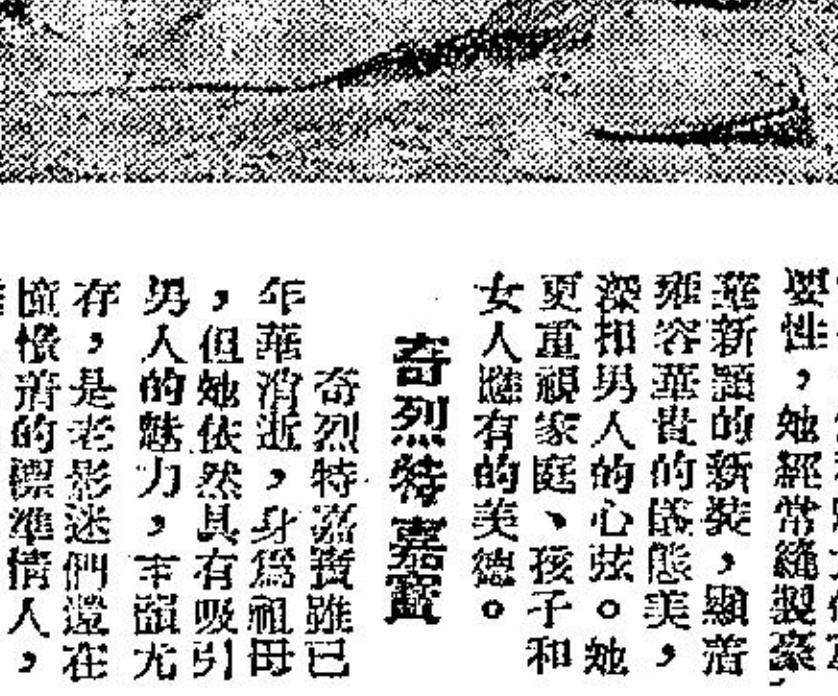 要性，她經常縫製豪
華新穎的新裝，顯着
雍容華貴的態美，
深扣男人的心弦。她
更重視家庭、孩子和
女人應有的美德。
奇烈特嘉寶
奇烈特嘉寶雖已
年華消逝，身爲祖母
，但她依然具有吸引
男人的魅力，丰韻尤
存，是老影迷們在
憧憬着的標準情人，